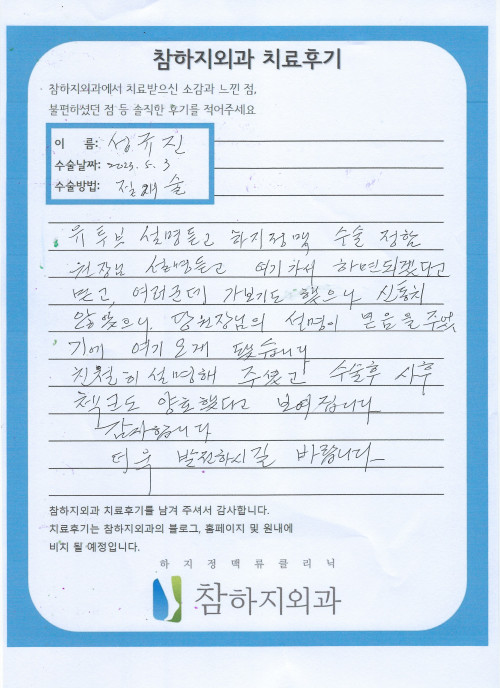 참하지외과 치료후기
참하지외과에서 치료받으신 소감과 느낀 점,
불편하셨던 점 등 솔직한 후기를 적어주세요
이 름: 성규진
수술날짜: 2023. 5. 3
수술방법: 절제술
유투브 설명듣고 하지정맥 수술 정함
원장님 설명듣고 여기가서 하면되겠다고
믿고, 여러군데 가보기도 했으나, 신통치
않았으나 당원장님의 설명이 믿음을 주었
기에 여기 오게 됐습니다
친절히 설명해 주셨고 수술후 사후
첵크도 양호했다고 보여집니다
감사합니다
더욱 발전하시길 바랍니다
참하지외과 치료후기를 남겨 주셔서 감사합니다.
치료후기는 참하지외과의 블로그, 홈페이지 및 원내에
비치 될 예정입니다.
하지정맥류클리닉
참하지외과